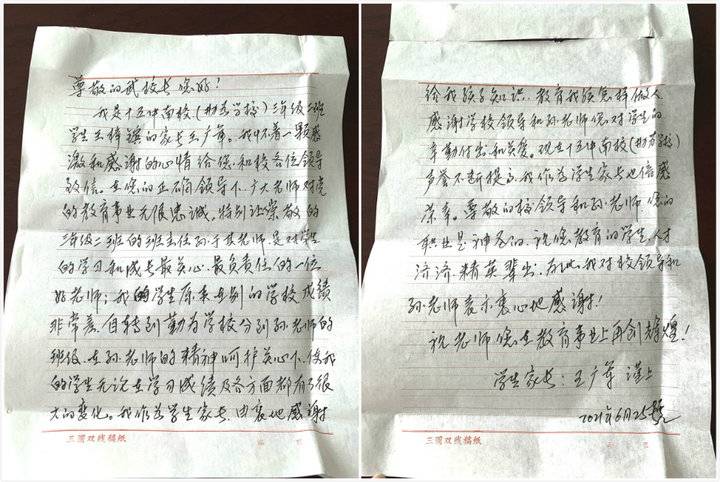 尊敬的武校长您好！
我是十五中南校(勤为学校)三年级二班
学生王梓 的家长王广军。我怀着一颗感
激和感谢的心情给您和校各位领导
致信。在您的正确领导下，广大老师对党
的教育事业无限忠诚。特别让崇敬的
三年级二班的班主任孙于 老师，是对学生
的学习和成长最关心、最负责任的一位
好老师；我的学生原来在别的学校成绩
非常差，自转到勤为学校分到孙老师的
班级，在孙老师的精神呵护关心下，使我
的学生无论在学习成绩及各方面都有了很
大的变化。我作为学生家长，由衷地感谢
三圈双线稿纸
给我孩子知识，教育我孩怎样做人
感谢学校领导和孙老师您对学生的
辛勤付出和关爱。现在十五中南校(勤为学校)
声誉不断提高，我作为学生家长也倍感
荣幸。尊敬的校领导和孙老师，您的
职业是神圣的，祝您教育的学生人才
济济，精英辈出，在此，我对校领导和
孙老师表示衷心地感谢！
祝老师您在教育事业上再创辉煌！
学生家长：王广军 谨上
2021年6月25号
三圈双线稿纸